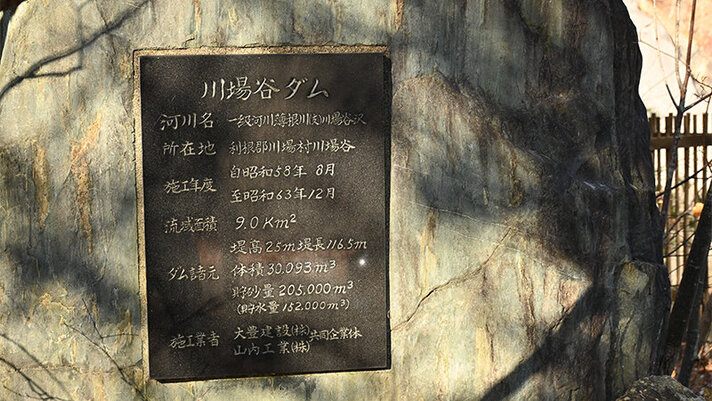 川場谷ダム
河川名 一級河川薄根川(支)川場谷沢
所在地 利根郡川場村川場谷
施工年度 自昭和58年 8月
至昭和63年12月
流域面積 9.0Km²
ダム諸元 堤高25m堤長116.5m
体積30.093m³
貯砂量205.000m³
(貯水量152.000m³)
施工業者 大豊建設(株)共同企業体
山内工業(株)